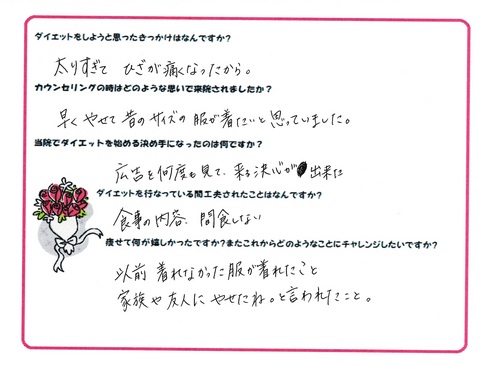 ダイエットをしようと思ったきっかけはなんですか?
太りすぎて ひざが痛くなったから。
カウンセリングの時はどのような思いで来院されましたか?
早くやせて昔のサイズの服が着たいと思っていました。
当院でダイエットを始める決め手になったのは何ですか?
広告を何度も見て、来る決心が出来た
ダイエットを行なっている間工夫されたことはなんですか?
食事の内容、間食しない
痩せて何が嬉しかったですか?またこれからどのようなことにチャレンジしたいですか?
以前着れなかった服が着れたこと
家族や友人にやせたね。と言われたこと。